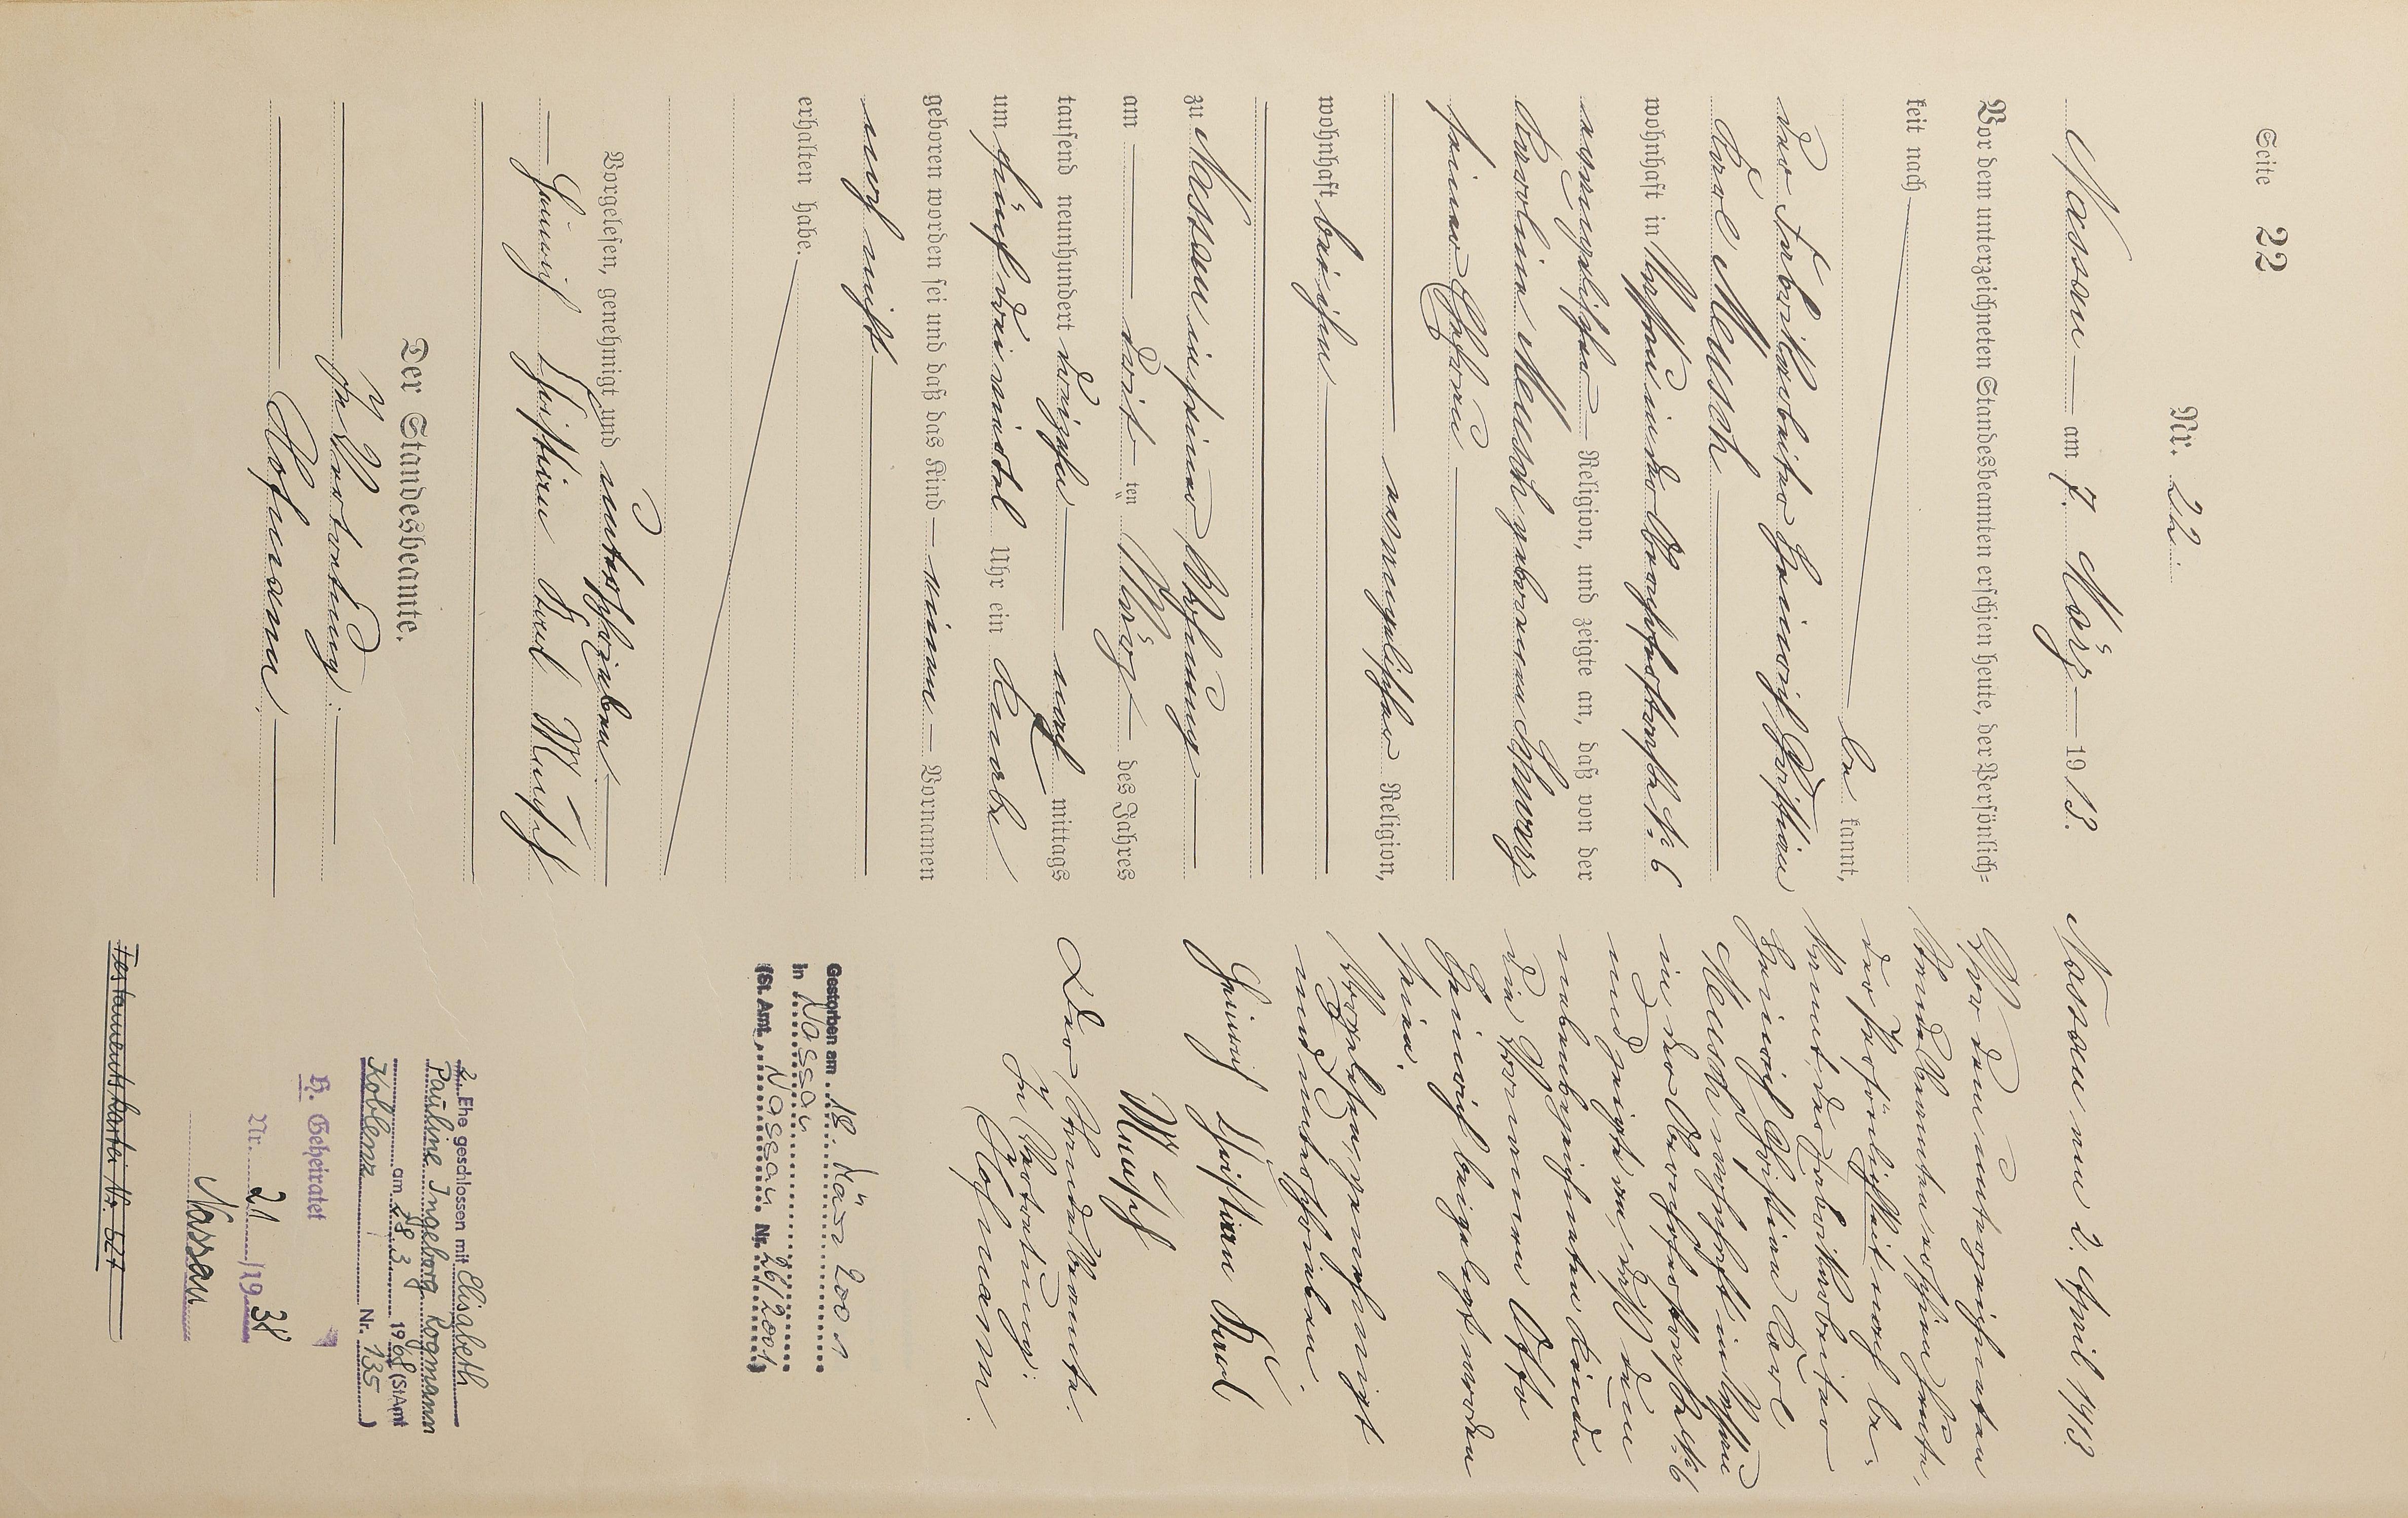 Seite 22
Nr. 22.
Nassau am 7. März 1913.
Vor dem unterzeichneten Standesbeamten erschien heute, der Persönlich-
keit nach
be kannt,
der Fabrikarbeiter Heinrich Christian
Karl Meusch
wohnhaft in Nassau in der Obernhoferstraße No 6
evangelischer Religion, und zeigte an, daß von der
Karoline Meusch geborenen Schwarz
seiner Ehefrau
evangelischer Religion,
wohnhaft bei ihm
zu Nassau in seiner Wohnung
am drit ten März des Jahres
tausend neunhundert dreizehn nach mittags
um fünf drei viertel Uhr ein Knabe
geboren worden sei und daß das Kind einen Vornamen
noch nicht
erhalten habe.
Vorgelesen, genehmigt und unterschrieben
Heinrich Christian Karl Meusch
Der Standesbeamte.
In Vertretung:
Hofmann.
Nassau am 2. April 1913.
Vor dem unterzeichneten
Standesbeamten erschien heute,
der Persönlichkeit nach be-
kannt, der Fabrikarbeiter
Heinrich Christian Karl
Meusch wohnhaft in Nassau
in der Obernhoferstraße No 6
und zeigte an, daß dem
nebenbezeichneten Kinde
die Vornamen Otto
Heinrich beigelegt worden
seien.
Vorgelesen, genehmigt
und unterschrieben.
Heinrich Christian Karl
Meusch
Der Standesbeamte.
In Vertretung:
Hofmann.
Gestorben am 18. März 2001
in Nassau
(St. Amt Nassau Nr. 26/2001)
2. Ehe geschlossen mit Elisabeth
Pauline Ingeborg Rogmann
am 28.3. 1968 (StAmt
Koblenz Nr. 135)
H. Geheiratet
Nr. 21/1938
Nassau
Testamentskartei Nr. 627